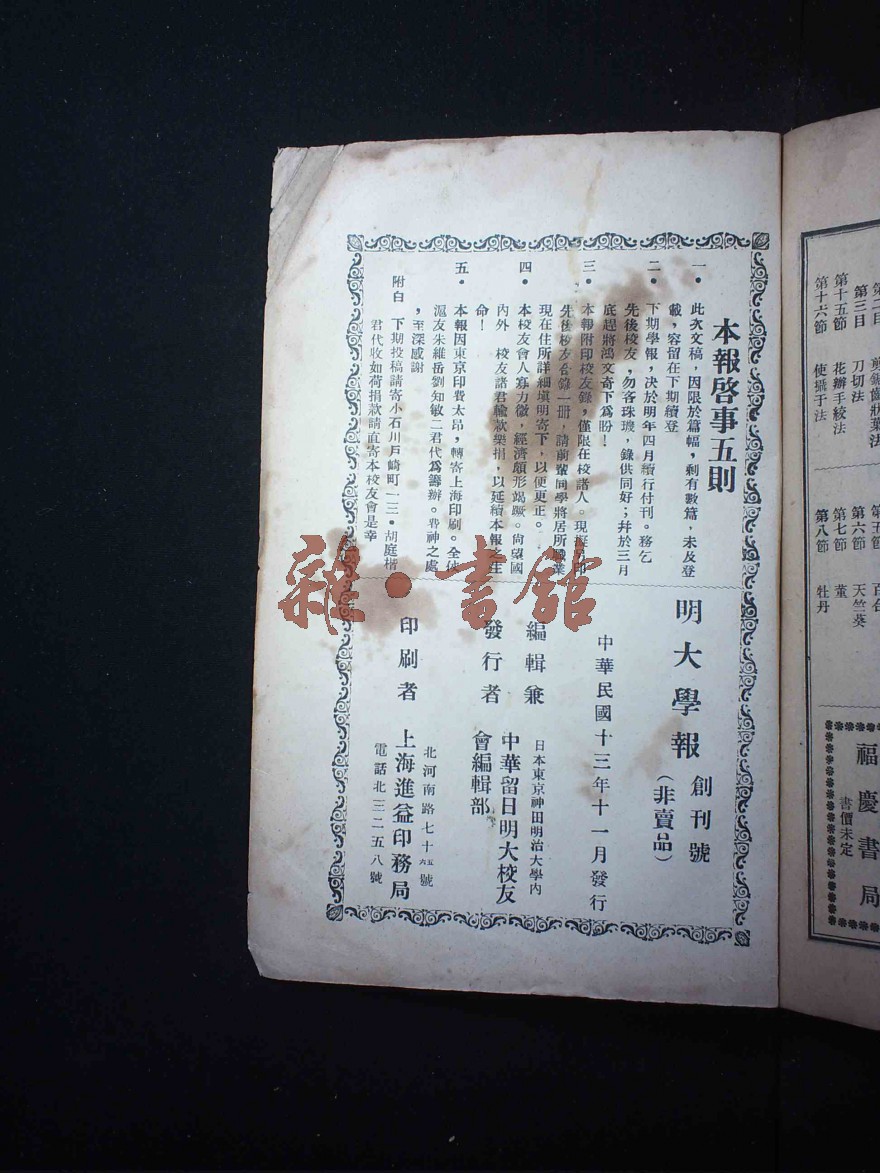 本報啓事五則
一・此次文稿，因限於篇幅，剩有數篇，未及登
載，容留在下期續登
二・下期學報，決於明年四月續行付刊。務乞
先後校友，勿吝珠璣，錄供同好；幷於三月
底趕將鴻文寄下爲盼！
三・本報附印校友錄，僅限在校諸人。現 印
先後校友 錄一册，請前輩同學將居所職業
現在住所詳細塡明寄下，以便更正。
四・本校友會人寡力微，經濟頗形竭蹶。尙望國
內外 校友諸君輸款樂捐，以延續本報之生
命！
五・本報因東京印費太昂，轉寄上海印刷。全仗
滬友朱維岳劉知敏二君代爲籌辦。費神之處
，至深感謝
附白 下期投稿請寄小石川戶崎町一三・胡庭楷
君代收如荷捐款請直寄本校友會是幸
明大學報 創刊號
（非賣品）
中華民國十三年十一月發行
編輯兼
發行者
日本東京神田明治大學內
中華留日明大校友
會編輯部
印刷者
北河南路七十五六號
上海進益印務局
電話北三二五八號
雜・書館
第三目 刀切法
第十五節 花瓣手絞法
第十六節 使攝于法
第六節 天竺葵
第七節 菫
第八節 牡丹
福慶書局
書價未定